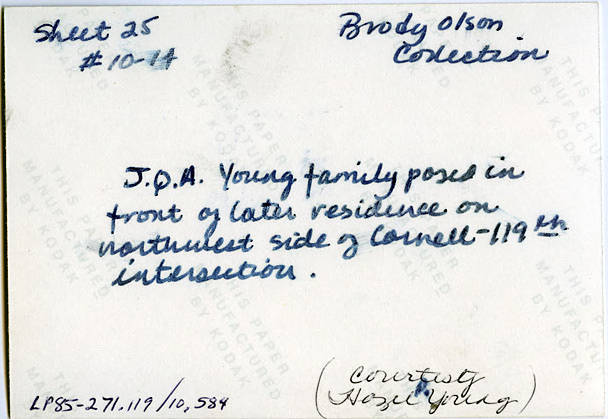 Sheet 25
#10-14
Brody Olson
Collection
THIS PAPER
MANUFACTURED
BY KODAK
J.Q.A. Young family posed in
front of later residence on
northwest side of Cornell-119th
intersection.
LP85-271.119/10,584
(Courtesty
Hazel Young)